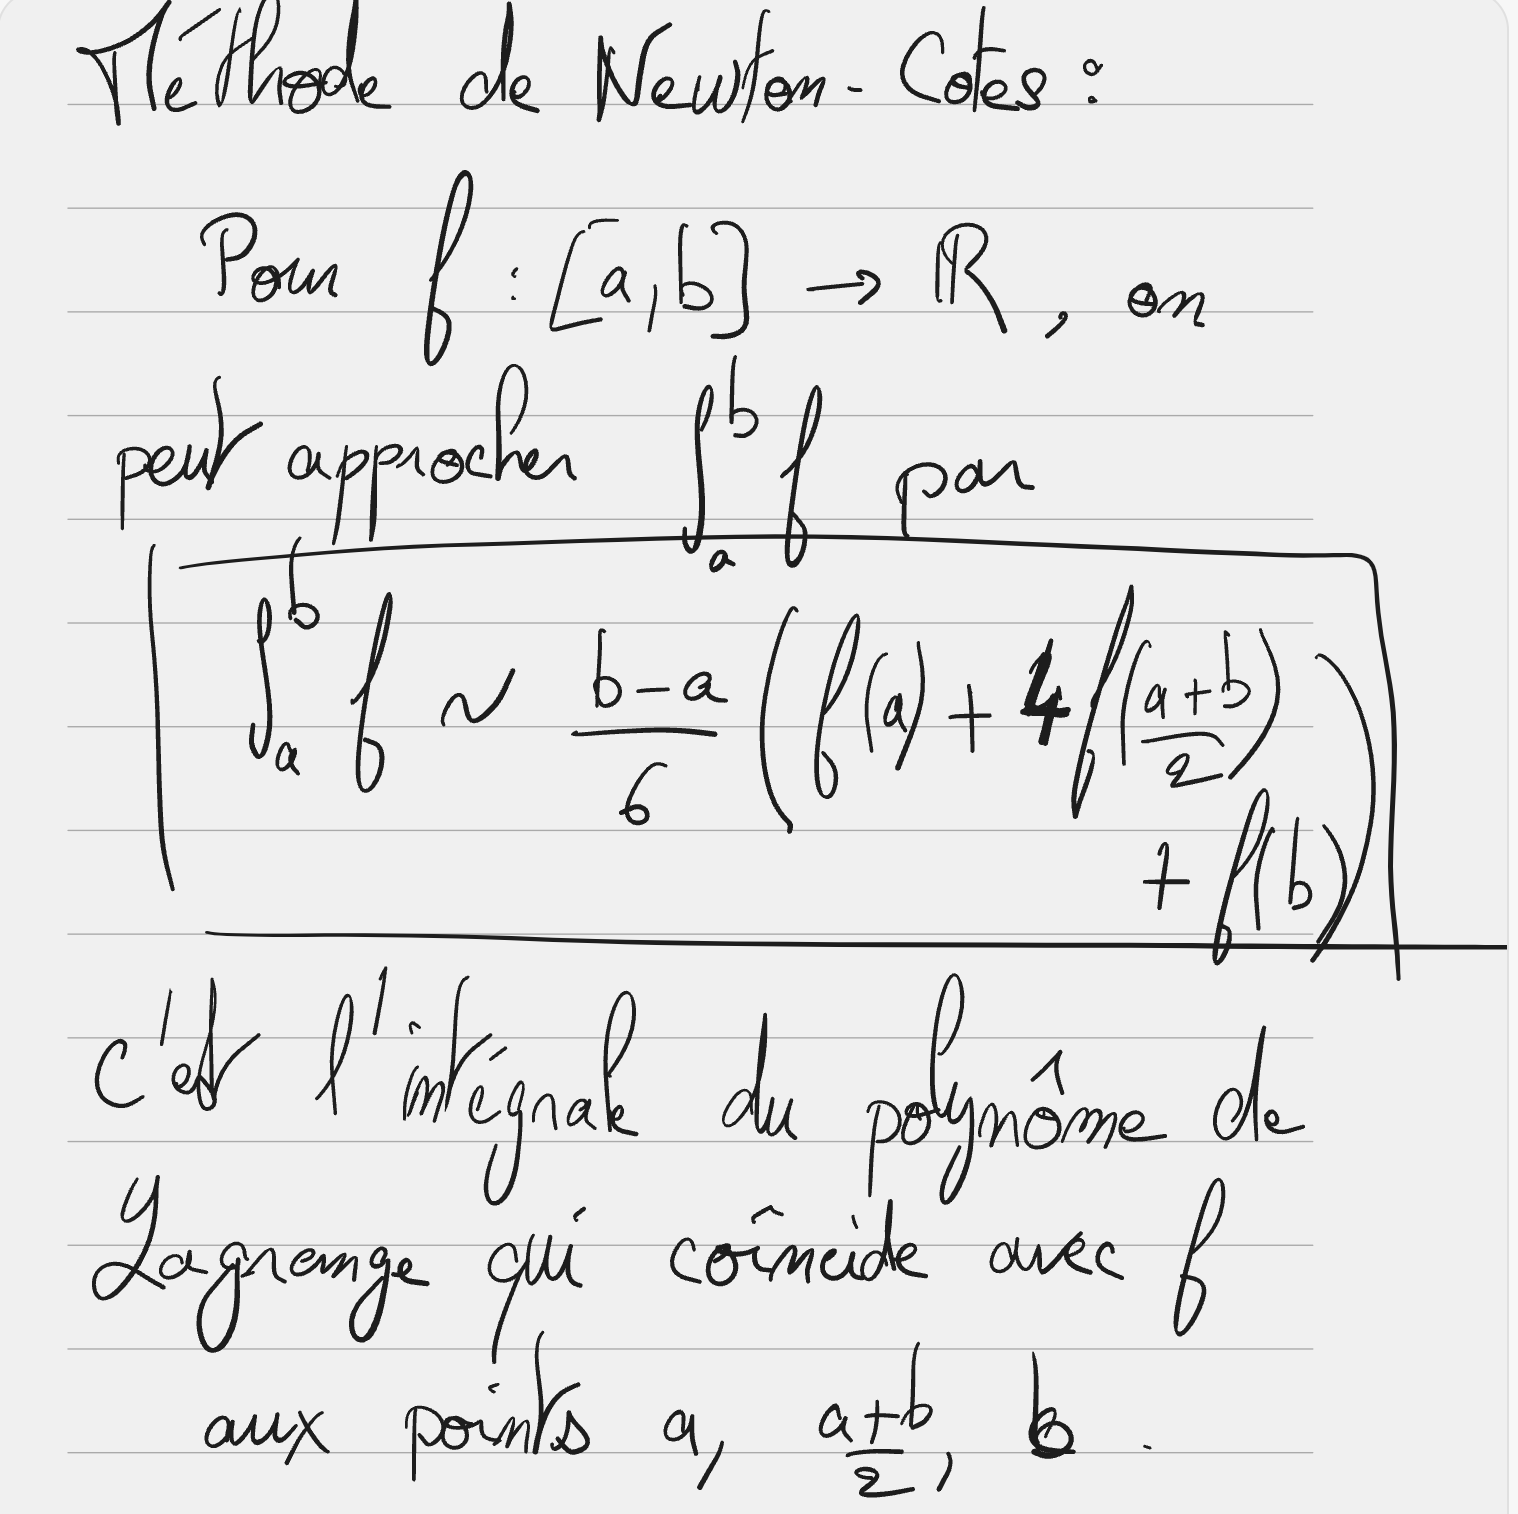 Méthode de Newton-Cotes :
Pour f : [a,b] → ℝ, on
peut approcher ∫_a^b f par
∫_a^b f ~ \frac{b-a}{6} (f(a) + 4f(\frac{a+b}{2})
+ f(b))
c'est l'intégrale du polynôme de
Lagrange qui coïncide avec f
aux points a, \frac{a+b}{2}, b.